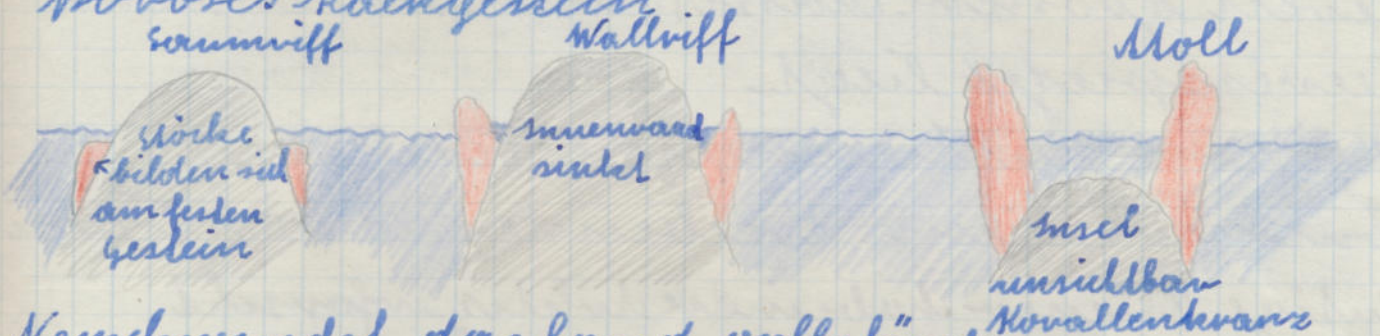 poröses Kalkgestein
Saumriff Wallriff Atoll
Stöcke
bilden sich
am festen
Gestein
Innenrand
sinkt
Insel
unsichtbar
Korallenkranz